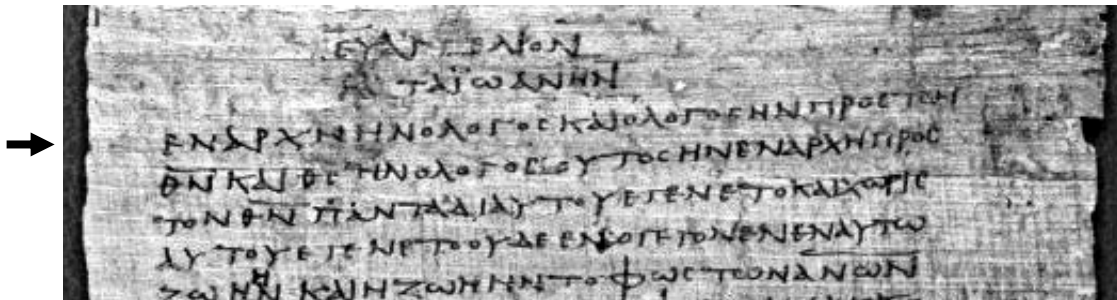 ΕΥΑΓΓΕΛΙΟΝ
ΚΑΤΑΪΩΑΝΗΝ
ΕΝΑΡΧΗΗΝΟΛΟΓΟϹΚΑΙΟΛΟΓΟϹΗΝΠΡΟϹΤΟΝ
Θ̅Ν̅ΚΑΙΘ̅Ϲ̅ΗΝΟΛΟΓΟϹΟΥΤΟϹΗΝΕΝΑΡΧΗΠΡΟϹ
ΤΟΝΘ̅Ν̅ΠΑΝΤΑΔΙΑΥΤΟΥΕΓΕΝΕΤΟΚΑΙΧΩΡΙϹ
ΑΥΤΟΥΕΓΕΝΕΤΟΟΥΔΕΕΝΟΓΕΓΟΝΕΝΕΝΑΥΤΩ
ΖΩΗΗΝΚΑΙΗΖΩΗΗΝΤΟΦΩϹΤΩΝΑ̅Ν̅Ω̅Ν̅